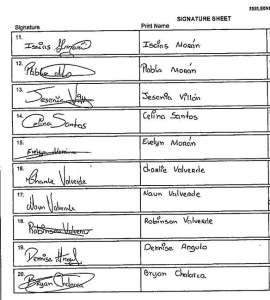 SIGNATURE SHEET
Signature Print Name
11. Isaias Morán Isaias Morán
12. Pabla Pabla Morán
13. Jesenia Villón Jesenia Villón
14. Celina Santos Celina Santos
15. Evelyn Evelyn Morán
16. Charlie Valverde Charlie Valverde
17. Naun Valverde Naun Valverde
18. Robinson Valverde Robinson Valverde
19. Denisse Angulo Denisse Angulo
20. Bryan Chalarca Bryan Chalarca